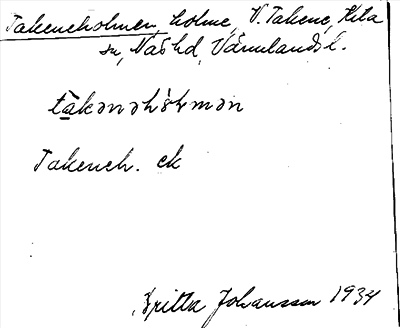 Takeneholmen, holme, V. Takene, Kila
sn, Näs hd, Värmlands l.
tàkənəhòḷmən
Takeneh. ek
Britta Johansson 1934